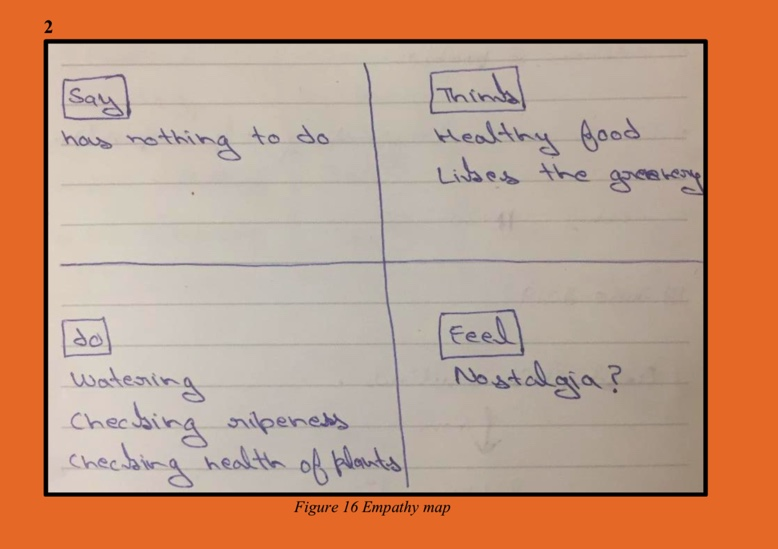 2
Say
has nothing to do
Think
Healthy food
Likes the greenery
do
Watering
Checking ripeness
Checking health of plants
Feel
Nostalgia?
Figure 16 Empathy map